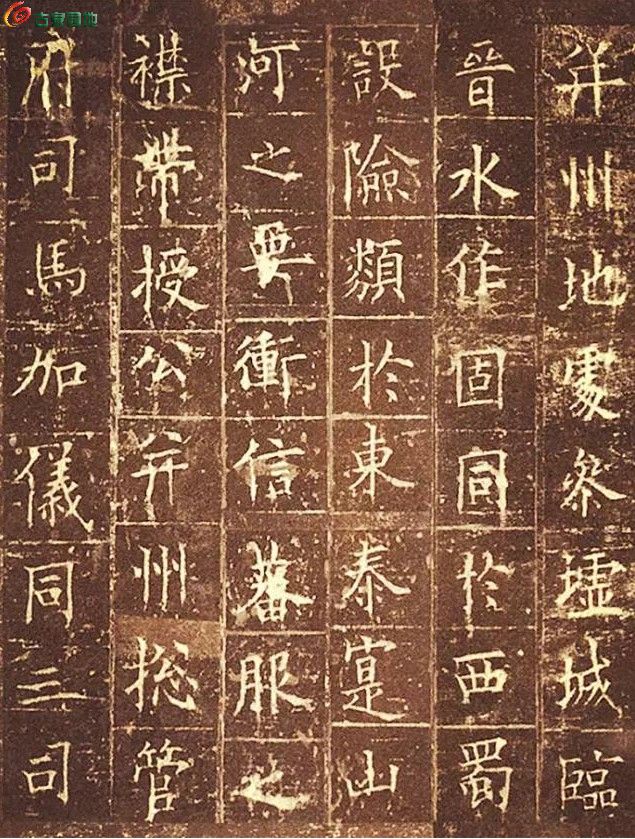 并州地處參墟城臨
晉水作固同於西蜀
設險類於東泰寔山
河之要衝信蕃服之
襟帶授公并州揔管
府司馬加儀同三司